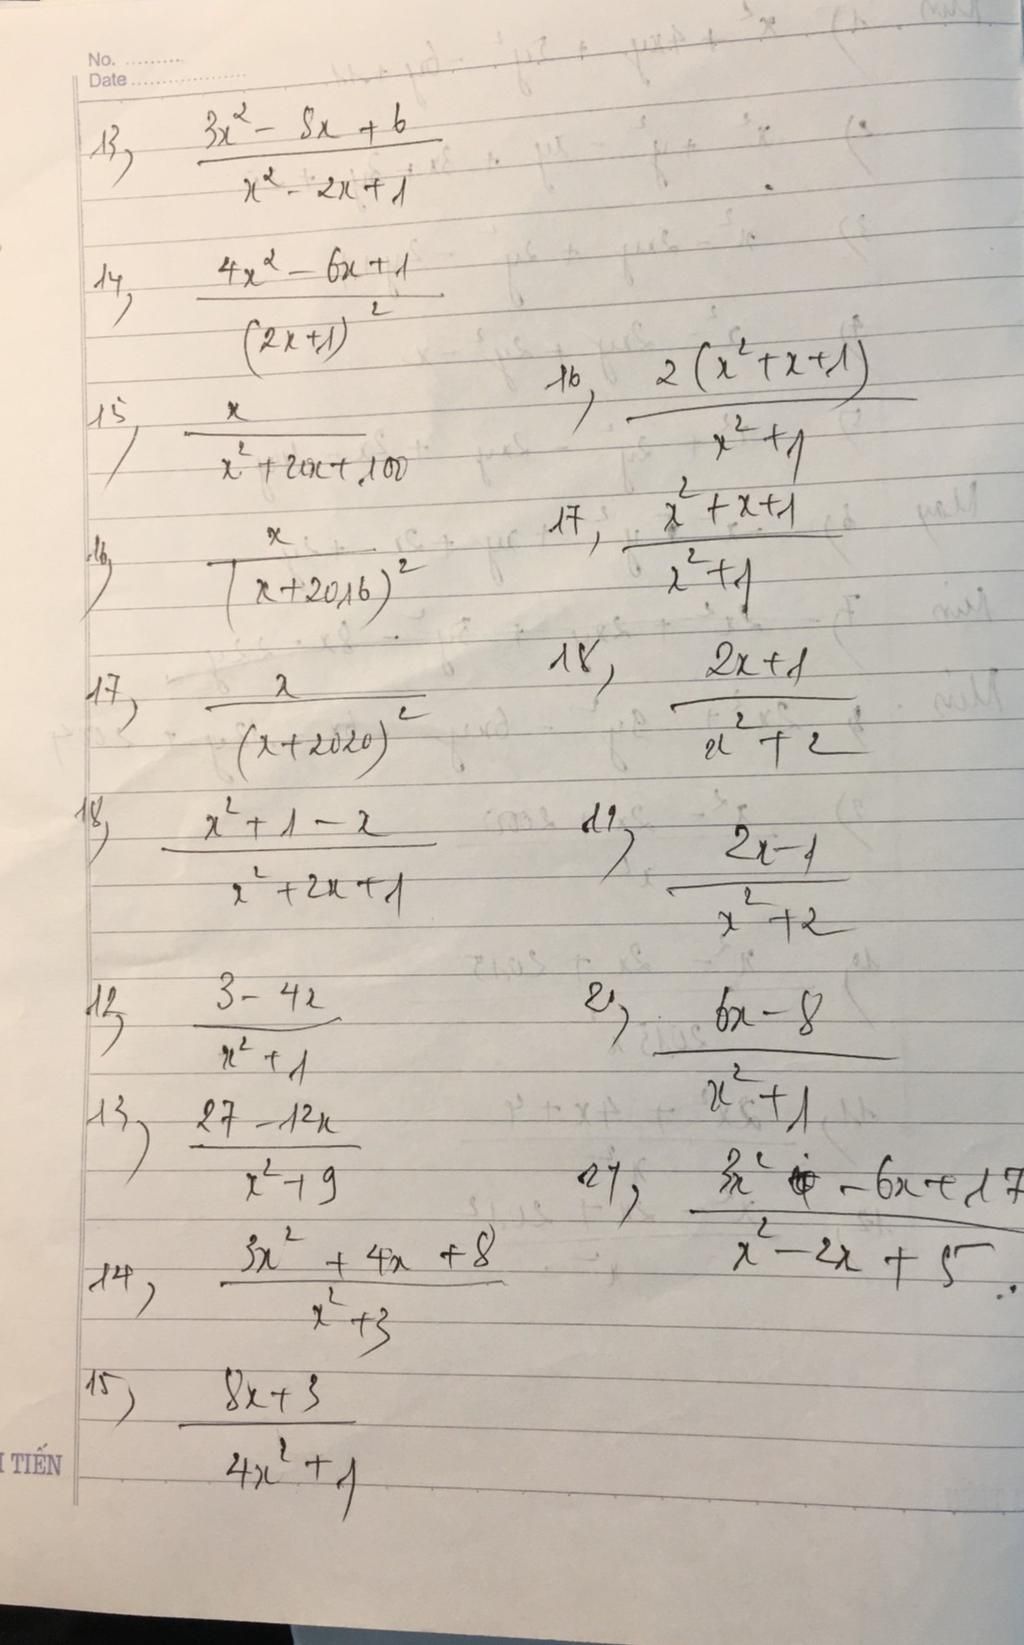 No. ..........
Date ......................
13, \frac{3x^2 - 8x + 6}{x^2 - 2x + 1}
14, \frac{4x^2 - 6x + 1}{(2x+1)^2}
15, \frac{x}{x^2 + 20x + 100}
16, \frac{2(x^2 + x + 1)}{x^2 + 1}
16, \frac{x}{(x + 2016)^2}
17, \frac{x^2 + x + 1}{x^2 + 1}
17, \frac{x}{(x + 2020)^2}
18, \frac{2x + 1}{x^2 + 2}
18, \frac{x^2 + 1 - x}{x^2 + 2x + 1}
19, \frac{2x - 1}{x^2 + 2}
12, \frac{3 - 4x}{x^2 + 1}
2, \frac{6x - 8}{x^2 + 1}
13, \frac{27 - 12x}{x^2 + 9}
21, \frac{3x^2 - 6x + 17}{x^2 - 2x + 5}
14, \frac{3x^2 + 4x + 8}{x^2 + 3}
15, \frac{8x + 3}{4x^2 + 1}
TIẾN